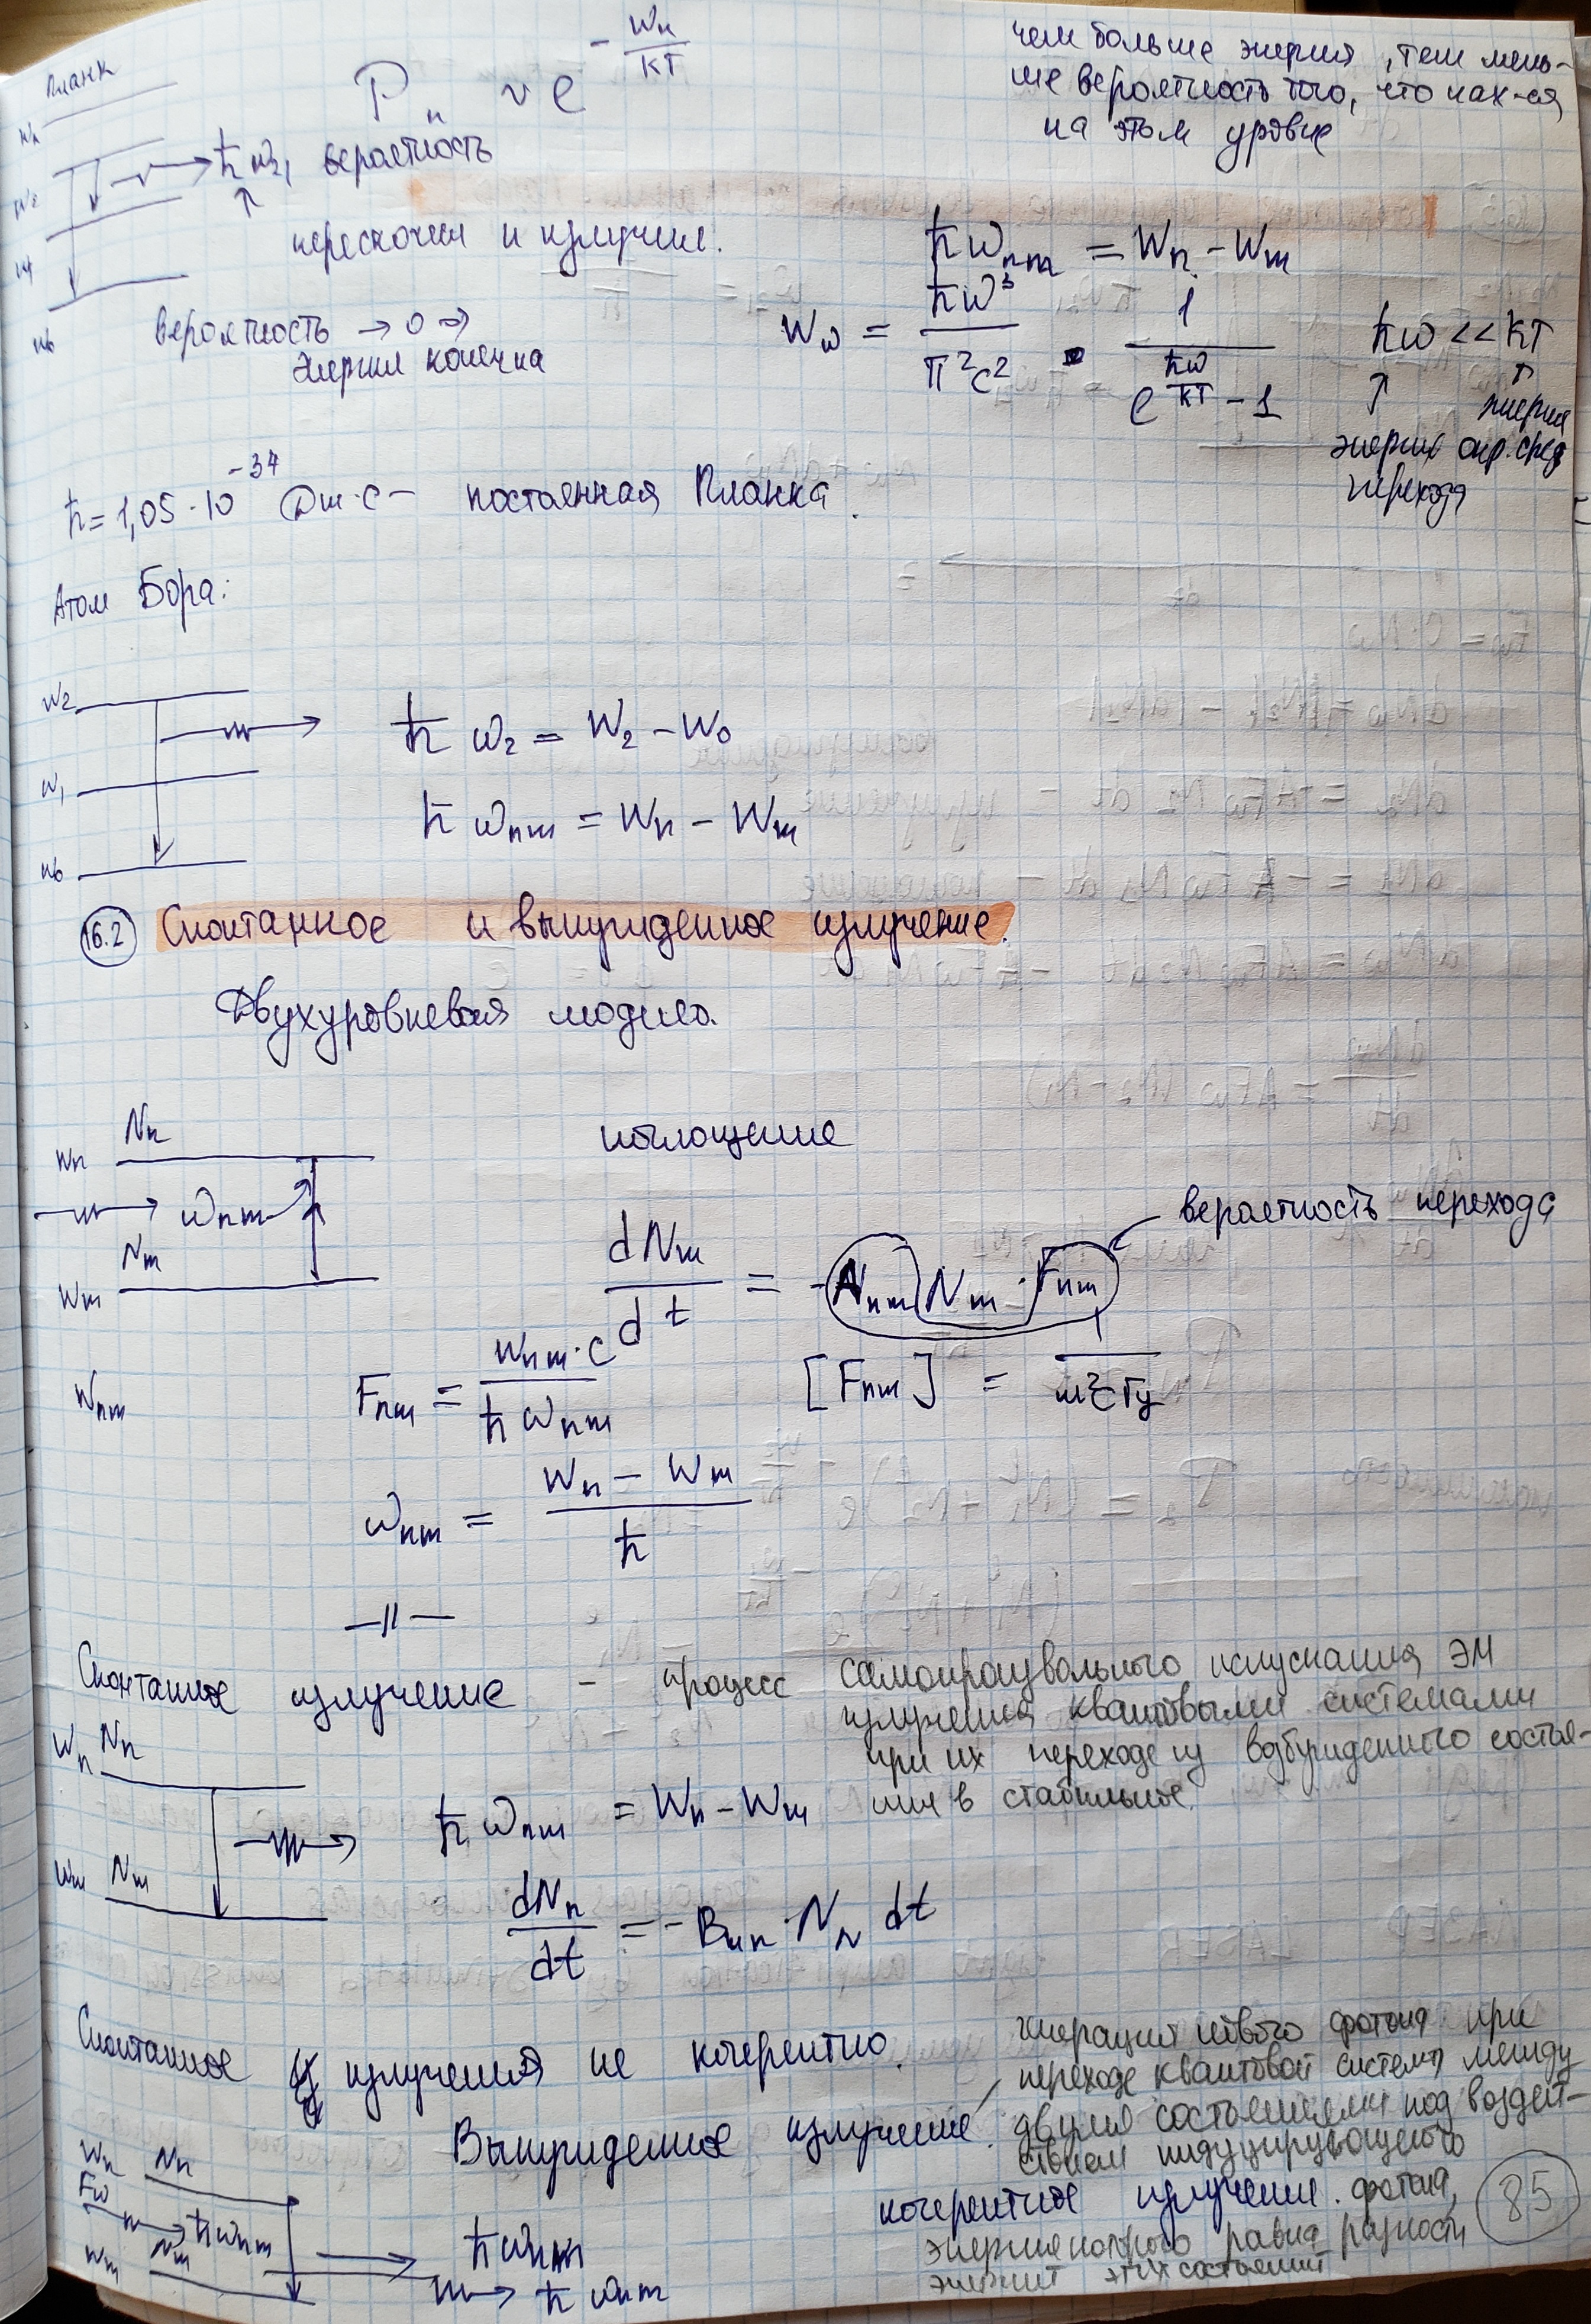 Планк
Pₙ ~ e^(-Wₙ/кТ)
чем больше энергия, тем мень-
ше вероятность того, что нах-ся
на этом уровне
Wₙ
W₂
W₁
W₀
ħω₂₁ вероятность
перескочил и излучил.
ħωₙₘ = Wₙ - Wₘ
вероятность → 0 ⇒
энергия конечна
W_ω = ħω³/(π²c²) · 1/(e^(ħω/кТ) - 1)
ħω << кТ
энергия перехода
энергия окр. сред
ħ = 1,05·10⁻³⁴ Дж·с — постоянная Планка.
Атом Бора:
W₂
W₁
W₀
ħω₂ = W₂ - W₀
ħωₙₘ = Wₙ - Wₘ
16.2 Спонтанное и вынужденное излучение.
Двухуровневая модель.
поглощение
Wₙ Nₙ
ωₙₘ
Wₘ Nₘ
dNₘ/dt = -Aₙₘ Nₘ · Fₙₘ
вероятность перехода
Wₙₘ
Fₙₘ = Wₙₘ·c/(ħωₙₘ)
[Fₙₘ] = 1/(м²с Гц)
ωₙₘ = (Wₙ - Wₘ)/ħ
—//—
Спонтанное излучение - процесс самопроизвольного испускания ЭМ
излучения квантовыми системами
при их переходе из возбужденного состоя-
ния в стабильное.
Wₙ Nₙ
Wₘ Nₘ
ħωₙₘ = Wₙ - Wₘ
dNₙ/dt = -Bₘₙ·N_N dt
Спонтанное излучения не когерентно.
Вынужденное излучение.
генерация нового фотона при
переходе квантовой системы между
двумя состояниями под воздей-
ствием индуцирующего
фотона,
энергия которого равна разности
энергий этих состояний
когерентное излучение.
Wₙ Nₙ
F_ω
ħωₙₘ
Wₘ Nₘ
ħωₙₘ
ħωₙₘ
85